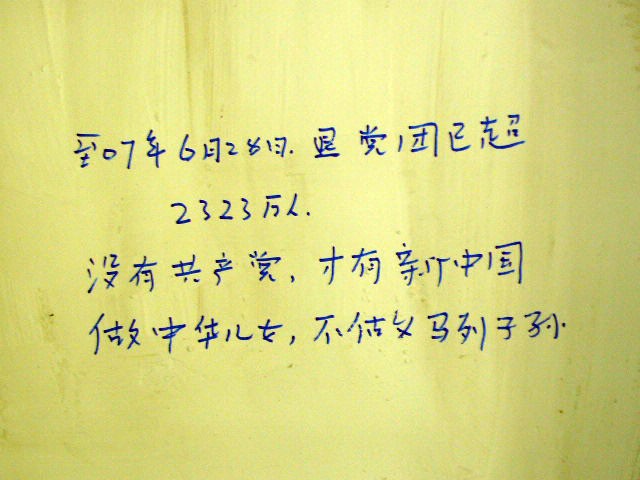 至07年6月28日.退党团已超
2323万人.
没有共产党,才有新中国
做中华儿女,不做马列子孙.